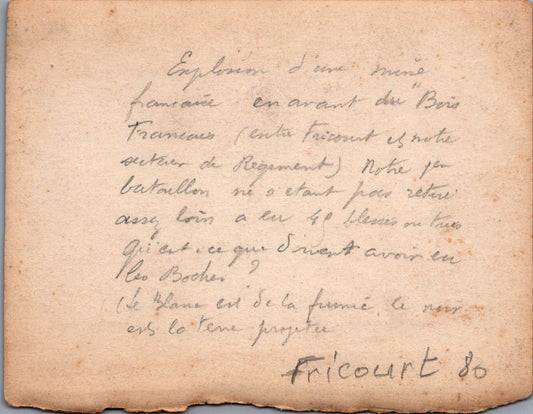 Explosion d'une mine
francaise en avant du "Bois
Francais (entre Fricourt et notre
secteur de Regiment) Notre 1er
bataillon ne s'etant pas retiré
assez loin a eu 45 blessés ou tués
Qu'est-ce que doivent avoir eu
les Boches ?
(Le Blanc est de la fumée, le noir
est la terre projetée
Fricourt 80